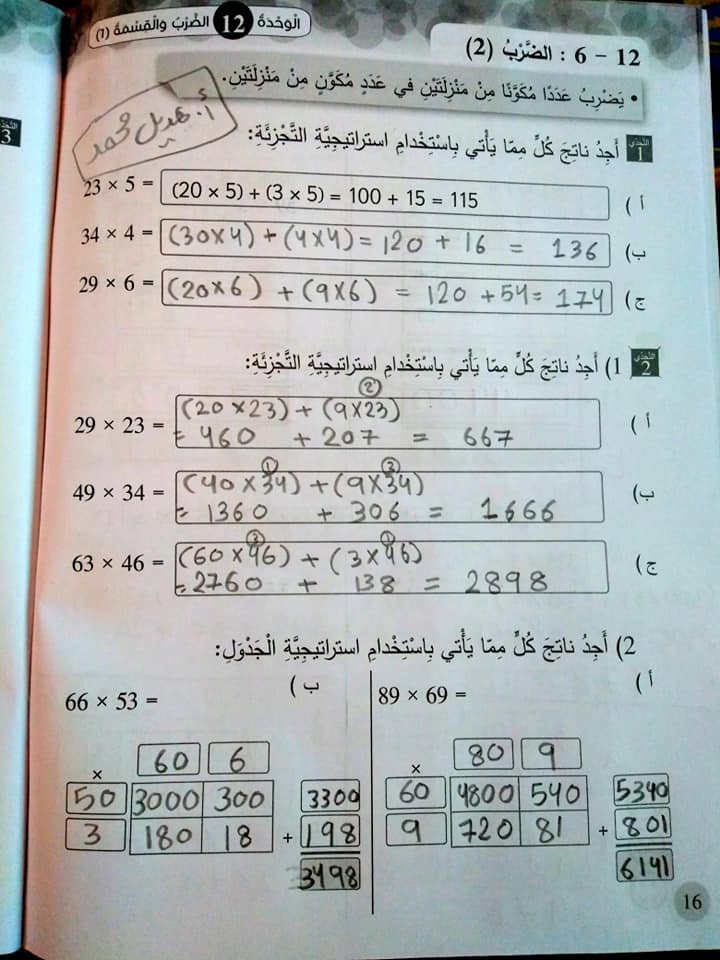 الْوَحْدَةُ 12 الضَّرْبُ وَالْقِسْمَةُ (1)
12 – 6 : الضَّرْبُ (2)
• يَضْرِبُ عَدَدًا مُكَوَّنًا مِنْ مَنْزِلَتَيْنِ في عَدَدٍ مُكَوَّنٍ مِنْ مَنْزِلَتَيْنِ.
أ. هديل محمد
التَّحَدّي 1 أَجِدُ ناتِجَ كُلٍّ مِمّا يَأْتي بِاسْتِخْدامِ استراتيجِيَّةِ التَّجْزِئَةِ:
أ ) 23 × 5 = (20 × 5) + (3 × 5) = 100 + 15 = 115
ب) 34 × 4 = (30×4) + (4×4) = 120 + 16 = 136
ج ) 29 × 6 = (20×6) + (9×6) = 120 + 54 = 174
التَّحَدّي 2 1) أَجِدُ ناتِجَ كُلٍّ مِمّا يَأْتي بِاسْتِخْدامِ استراتيجِيَّةِ التَّجْزِئَةِ:
2
أ ) 29 × 23 = (20×23) + (9×23)
= 460 + 207 = 667
1 3
ب) 49 × 34 = (40×34) + (9×34)
= 1360 + 306 = 1666
ج ) 63 × 46 = (60×46) + (3×46)
= 2760 + 138 = 2898
2) أَجِدُ ناتِجَ كُلٍّ مِمّا يَأْتي بِاسْتِخْدامِ استراتيجِيَّةِ الْجَدْوَلِ:
أ ) 89 × 69 =
× 80 9
60 4800 540 5340
9 720 81 + 801
6141
ب ) 66 × 53 =
× 60 6
50 3000 300 3300
3 180 18 + 198
3498
16
التَّحَدّي 3